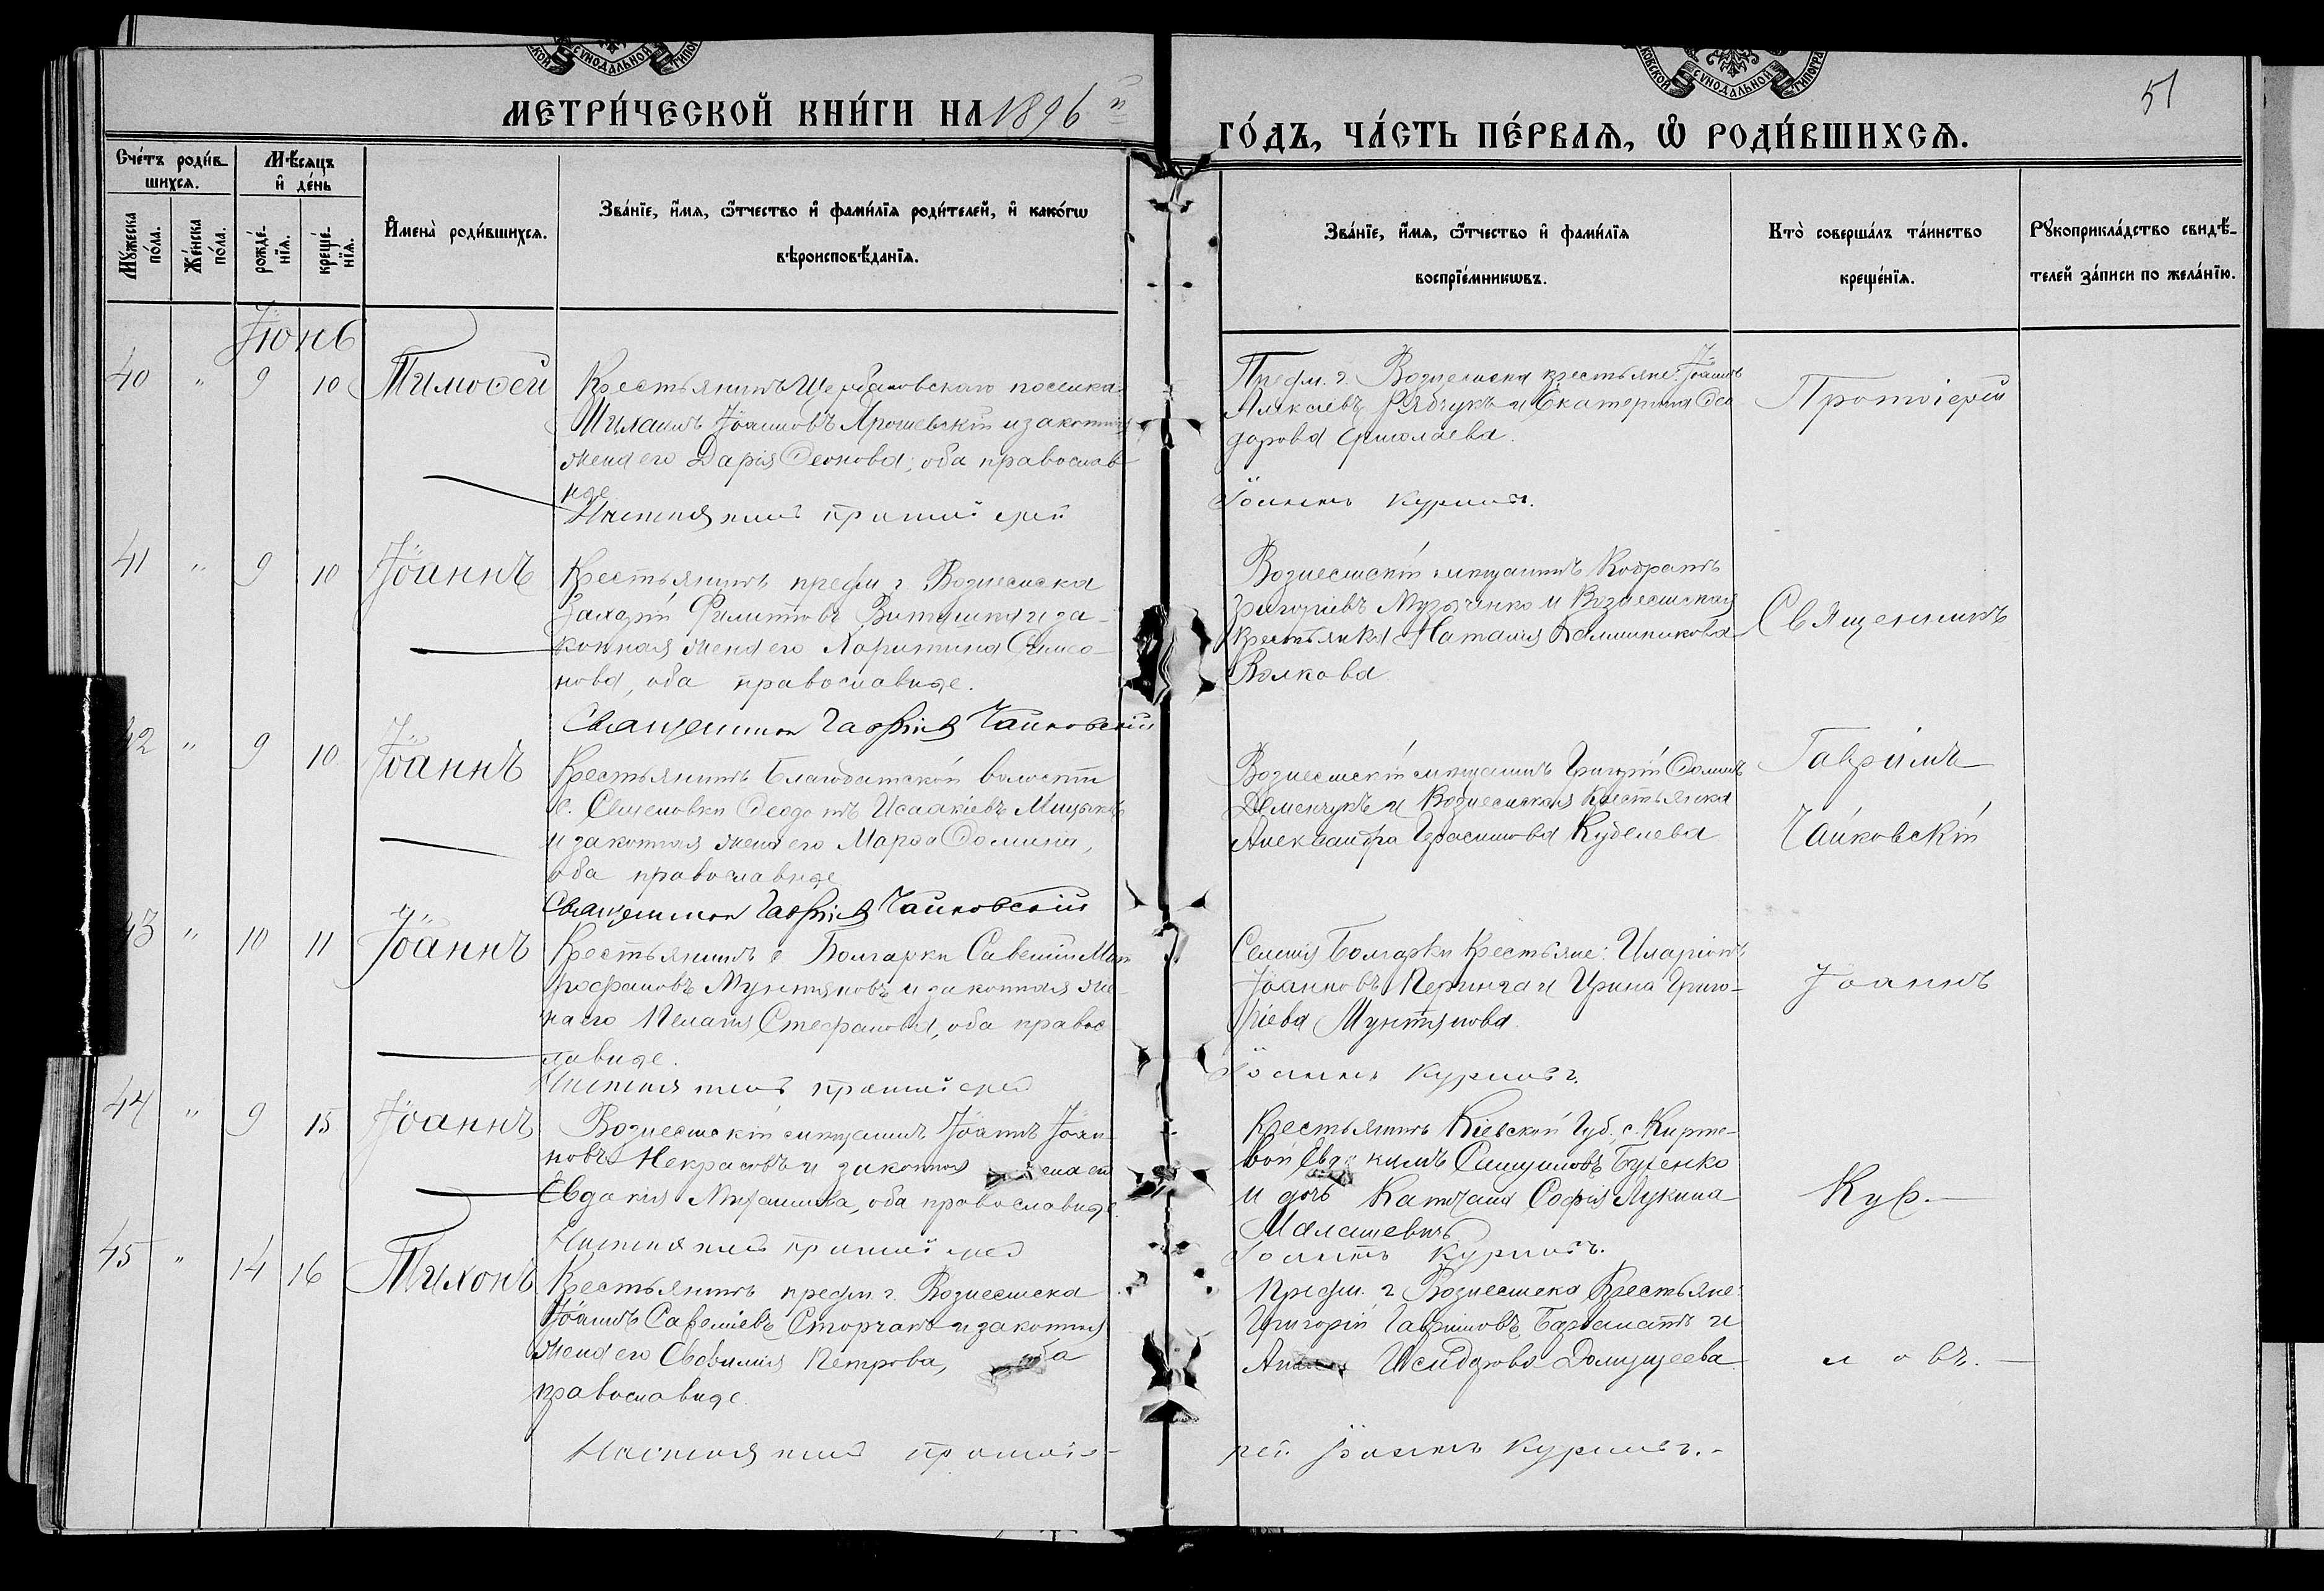 МЕТРИ́ЧЕСКОЙ КНИ́ГИ НА 1896 й
ГО́ДЪ, ЧА́СТЬ ПЕ́РВАѦ, Ѡ҆ РОДИ́ВШИХСѦ.
51
Сче́тъ роди́в-
шихсѧ.
Мѣ́сѧцъ
и҆ де́нь
Мꙋ́жеска по́ла.
Же́нска по́ла.
рожде́-
нїѧ.
креще́-
нїѧ.
И҆мена̀ роди́вшихсѧ.
Зва́нїе, и҆́мѧ, ѻ҆́тчество и҆ фами́лїѧ роди́телей, и҆ како́гѡ
вѣроисповѣ́данїѧ.
Зва́нїе, и҆́мѧ, ѻ҆́тчество и҆ фами́лїѧ
воспрїе́мникѡвъ.
Кто̀ соверша́лъ та́инство
креще́нїѧ.
Рꙋкоприкла́дство свидѣ́-
телей за́писи по жела́нїю.
Іюнь
40 " 9 10 Тимоѳей
Крестьянинъ поселка
Михаилъ Іоанновъ Ярошевскій и законная
жена его Дарія Леонова; оба православ-
ные
Настоятель протоіерей
Предм. г. Вознесенска крестьяне: Іоаннъ
Алексіевъ Рябчукъ и Екатерина Ѳео
дорова Ермолаева.
Іоаннъ Курловъ.
Протоіерей
41 " 9 10 Іоаннъ
Крестьянинъ предм. г. Вознесенска
Захарій Филипповъ и за-
конная жена его Харитина Симео-
нова, оба православные.
Священникъ Гавріилъ Чайковскій
Вознесенскій мѣщанинъ Кодратъ
Григоріевъ Музыченко и Вознесенская
крестьянка Наталія
Волкова
Священникъ
42 " 9 10 Іоаннъ
Крестьянинъ Благодатской волости
с. Семеновки Ѳеодотъ Исаакіевъ
и законная жена его Марѳа Ѳомина,
оба православные
Священникъ Гавріилъ Чайковскій
Вознесенскій мѣщанинъ Григорій Ѳоминъ
Деменчукъ и Вознесенская крестьянка
Александра Герасимова Куделева
Гавріилъ
Чайковскій
43 " 10 11 Іоаннъ
Крестьянинъ с. Болгарки Савелій Мит
рофановъ Мунтяновъ и законная же-
на его Пелагія Стефанова, оба правос
лавные.
Настоятель протоіерей
Селенія Болгарки крестьяне: Иларіонъ
Іоанновъ и Ирина Григо-
ріева Мунтянова
Іоаннъ Курловъ.
Іоаннъ
44 " 9 15 Іоаннъ
Вознесенскій мѣщанинъ Іоаннъ Іоан-
новъ Некрасовъ и законная жена его
Евдокія Михаилова, оба православные.
Настоятель протоіерей
Крестьянинъ Кіевской Губ. с.
Евдокимъ Самуиловъ Буценко
и дочь Капитана Софія Лукина
Малашевичъ
Іоаннъ Курловъ.
Кур.—
45 " 14 16 Тихонъ
Крестьянинъ предм. г. Вознесенска
Іоаннъ Савеліевъ Сторчакъ и законная
жена его Евѳимія Петрова, оба
православные.
Настоятель протоіе-
Предм. г. Вознесенска крестьяне:
Григорій Гавриловъ и
Исидорова
рей Іоаннъ Курловъ.-
ловъ.—